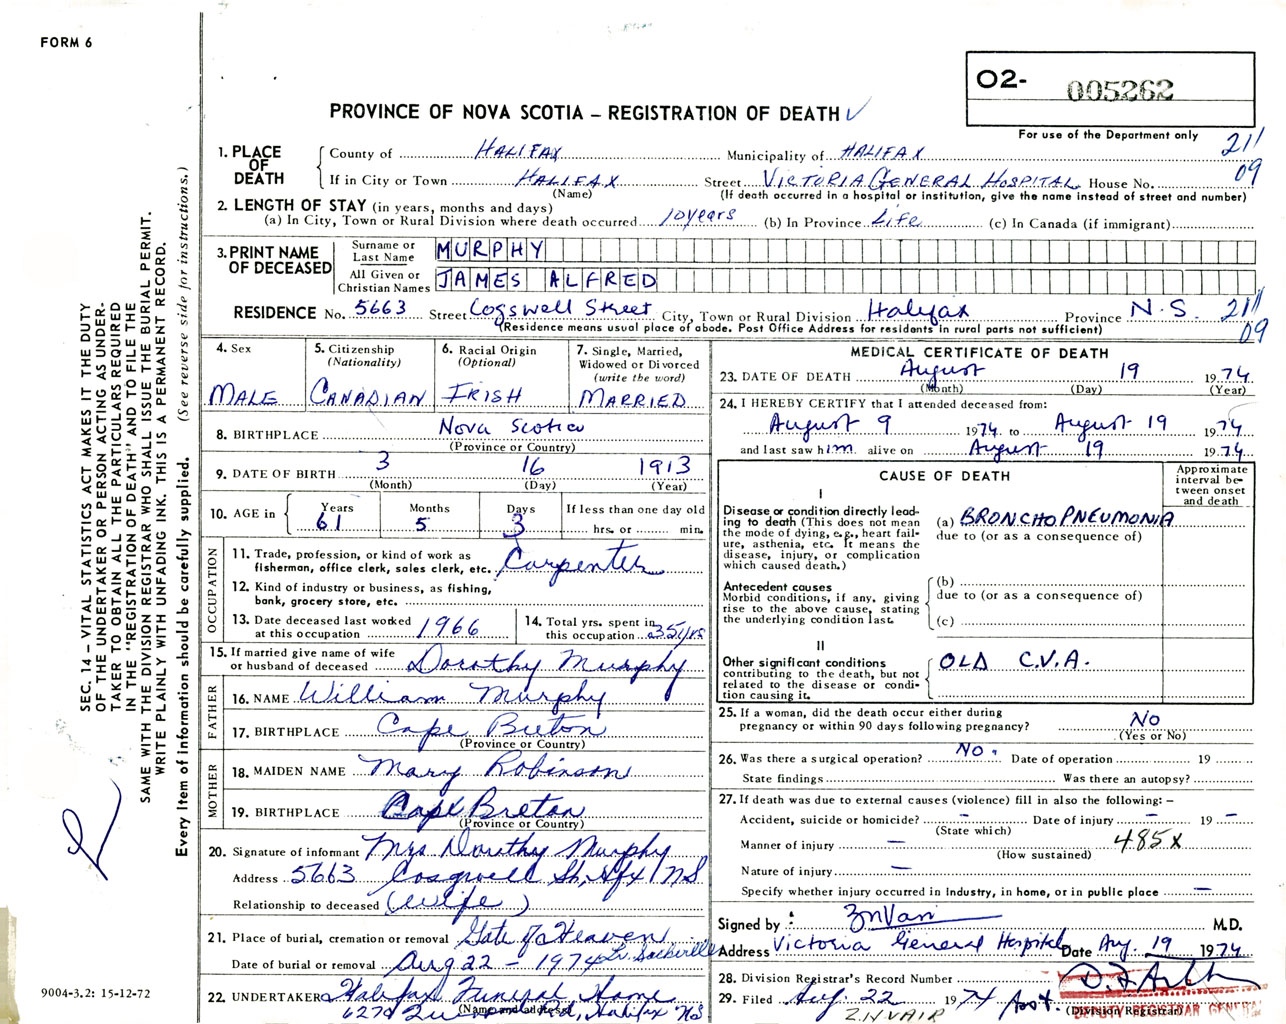 FORM 6
O2- 005262
PROVINCE OF NOVA SCOTIA – REGISTRATION OF DEATH
For use of the Department only
211
09
1. PLACE OF DEATH
County of HALIFAX Municipality of HALIFAX
If in City or Town HALIFAX Street VICTORIA GENERAL HOSPITAL House No.
(Name) (If death occurred in a hospital or institution, give the name instead of street and number)
2. LENGTH OF STAY (in years, months and days)
(a) In City, Town or Rural Division where death occurred 10 years (b) In Province Life (c) In Canada (if immigrant)
3. PRINT NAME OF DECEASED
Surname or Last Name MURPHY
All Given or Christian Names JAMES ALFRED
RESIDENCE No. 5663 Street Cogswell Street City, Town or Rural Division Halifax Province N.S. 211
09
(Residence means usual place of abode. Post Office Address for residents in rural parts not sufficient)
4. Sex
MALE
5. Citizenship
(Nationality)
CANADIAN
6. Racial Origin
(Optional)
IRISH
7. Single, Married,
Widowed or Divorced
(write the word)
MARRIED
8. BIRTHPLACE Nova Scotia
(Province or Country)
9. DATE OF BIRTH 3 16 1913
(Month) (Day) (Year)
10. AGE in Years Months Days If less than one day old
61 5 3 hrs. or min.
OCCUPATION
11. Trade, profession, or kind of work as
fisherman, office clerk, sales clerk, etc. Carpenter
12. Kind of industry or business, as fishing,
bank, grocery store, etc.
13. Date deceased last worked
at this occupation 1966
14. Total yrs. spent in
this occupation 35 yrs
15. If married give name of wife
or husband of deceased Dorothy Murphy
FATHER
16. NAME William Murphy
17. BIRTHPLACE Cape Breton
(Province or Country)
MOTHER
18. MAIDEN NAME Mary Robinson
19. BIRTHPLACE Cape Breton
(Province or Country)
20. Signature of informant Mrs Dorothy Murphy
Address 5663 Cosgwell St, Hfx NS
Relationship to deceased (wife)
21. Place of burial, cremation or removal Gate of Heaven
Lr. Sackville
Date of burial or removal Aug 22 – 1974
22. UNDERTAKER Halifax Funeral Home
(Name and address)
Halifax NS
MEDICAL CERTIFICATE OF DEATH
23. DATE OF DEATH August 19 1974
(Month) (Day) (Year)
24. I HEREBY CERTIFY that I attended deceased from:
August 9 1974 to August 19 1974
and last saw him alive on August 19 1974
CAUSE OF DEATH
Approximate
interval be-
tween onset
and death
I
Disease or condition directly lead-
ing to death (This does not mean
the mode of dying, e.g., heart fail-
ure, asthenia, etc. It means the
disease, injury, or complication
which caused death.)
(a) BRONCHOPNEUMONIA
due to (or as a consequence of)
Antecedent causes
Morbid conditions, if any, giving
rise to the above cause, stating
the underlying condition last.
(b)
due to (or as a consequence of)
(c)
II
Other significant conditions
contributing to the death, but not
related to the disease or condi-
tion causing it.
OLD C.V.A.
25. If a woman, did the death occur either during
pregnancy or within 90 days following pregnancy? NO
(Yes or No)
26. Was there a surgical operation? NO. Date of operation 19
State findings Was there an autopsy?
27. If death was due to external causes (violence) fill in also the following: –
Accident, suicide or homicide? – Date of injury – 19 –
(State which)
Manner of injury – 485X
(How sustained)
Nature of injury –
Specify whether injury occurred in industry, in home, or in public place –
Signed by : M.D.
Address Victoria General Hospital Date Aug. 19 1974
28. Division Registrar's Record Number
29. Filed Aug. 22 1974
(Division Registrar)
DEPUTY REGISTRAR GENERAL
SEC. 14 – VITAL STATISTICS ACT MAKES IT THE DUTY
OF THE UNDERTAKER OR PERSON ACTING AS UNDER-
TAKER TO OBTAIN ALL THE PARTICULARS REQUIRED
IN THE "REGISTRATION OF DEATH" AND TO FILE THE
SAME WITH THE DIVISION REGISTRAR WHO SHALL ISSUE THE BURIAL PERMIT.
WRITE PLAINLY WITH UNFADING INK. THIS IS A PERMANENT RECORD.
Every item of information should be carefully supplied. (See reverse side for instructions.)
9004-3.2: 15-12-72